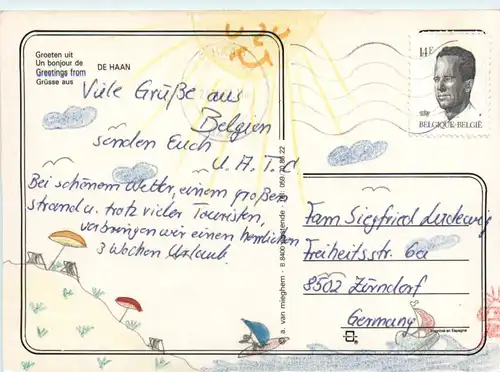 Groeten uit
Un bonjour de
Greetings from DE HAAN
Grüsse aus
Viele Grüße aus
Belgien
senden Euch
U. A. T. C
Bei schönem Wetter, einem großen
Strand u. trotz vieler Touristen,
verbringen wir einen herrlichen
3 Wochen Urlaub
a. van mieghem - B 8400 oostende
14F
BELGIQUE-BELGIË
Fam Siegfried
Freiheitsstr. 6a
8502 Zirndorf
Germany